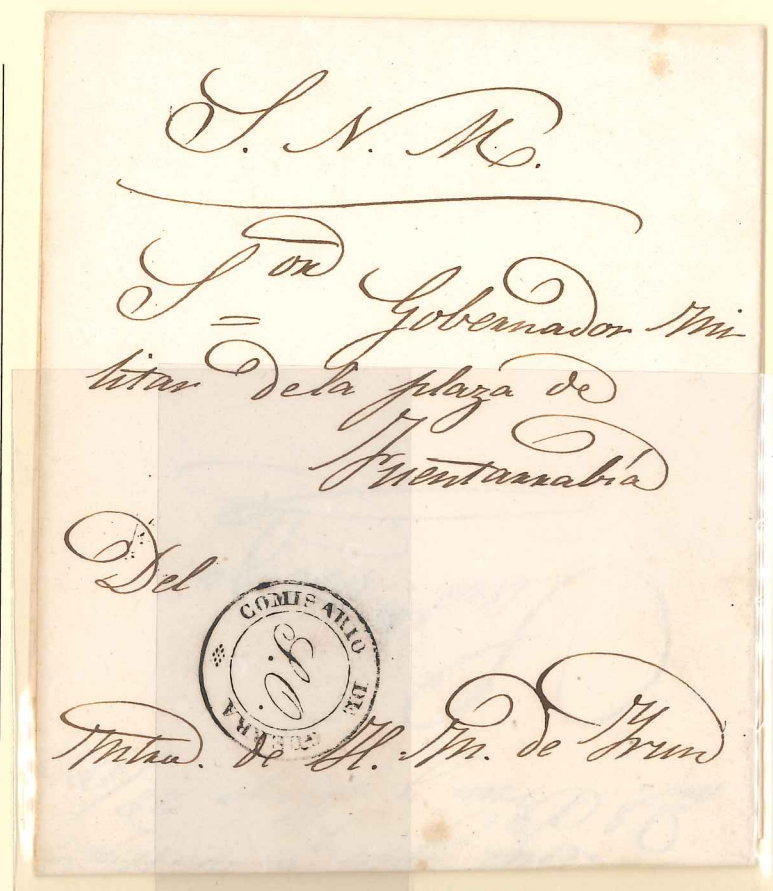 S. N. M.
Sor Gobernador Mi-
litar dela plaza de
Fuentarrabía
Del
COMISARIO DE GUERRA
S. O.
de H. M. de Yrun